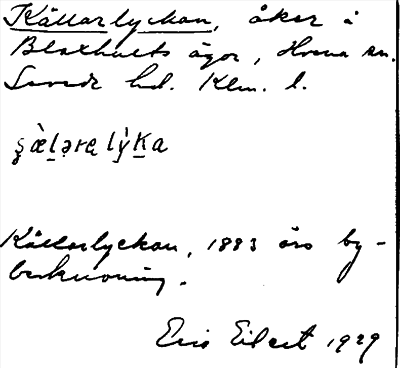 Källarlyckan, åker i
Bloxhults ägor, Hvena sn.
Sevede hd. Klm. l.
ʂæ̀lərɑ lỳka
Källarlyckan, 1883 års by-
beskrivning.
Eric Eilert 1929